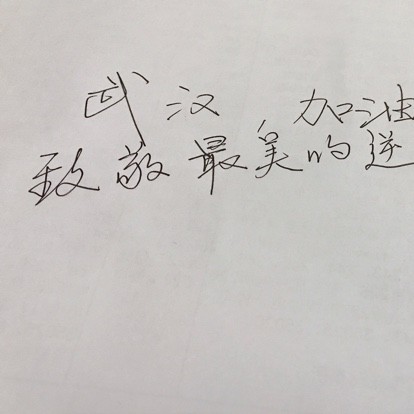 武汉 加油
致敬最美的逆